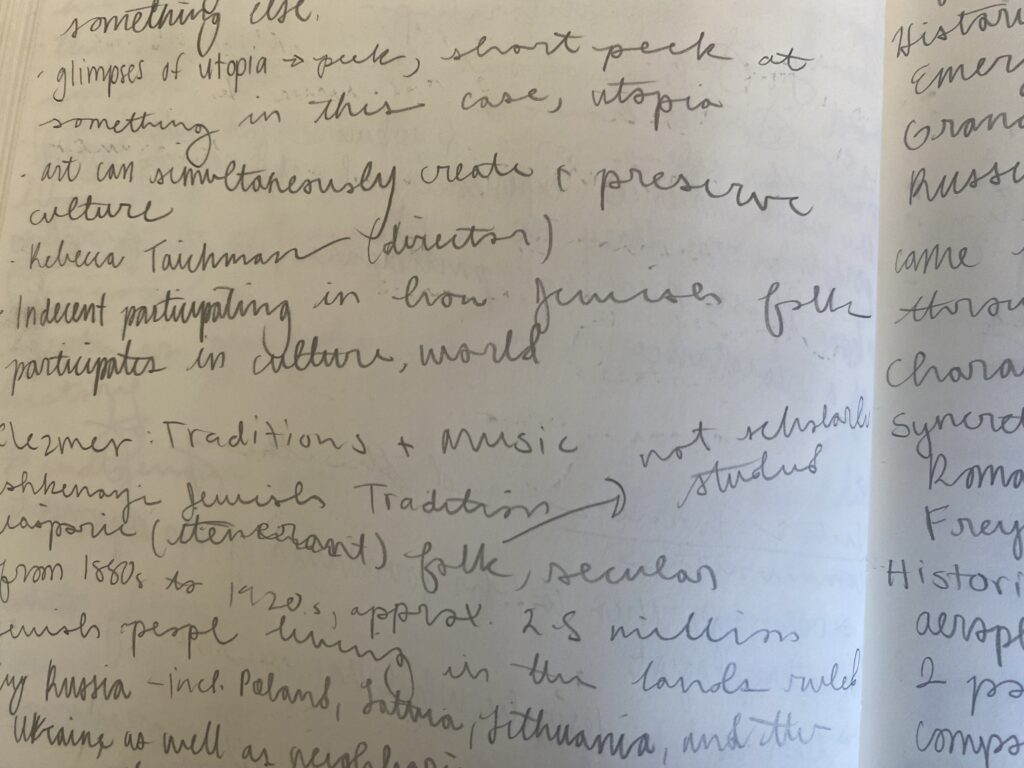 something else.
· glimpses of utopia → peek, short peek at
something in this case, utopia
· art can simultaneously create & preserve
culture
· Rebecca Taichman (director)
· Indecent participating in how Jewish folk
participates in culture, world
Klezmer: Traditions + Music not scholarly
studied
Ashkenazi Jewish Tradition →
Diasporic (itenerant) folk, secular
from 1880s to 1920s, approx. 2.5 million
Jewish peopl living in the lands ruled
by Russia - incl. Poland, Lattvia, Lithuania, and the
Ukraine as well as
Histori
Emerg
Grand
Russi
came
throu
Chara
Syncret
Roma
Frey
Histori
aerop
2 pa
comps